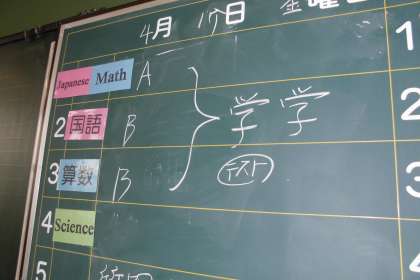 4月 17日 金曜
Japanese Math A 1
2 国語 B 学学 2
3 算数 B テスト 3
4 Science 4
5